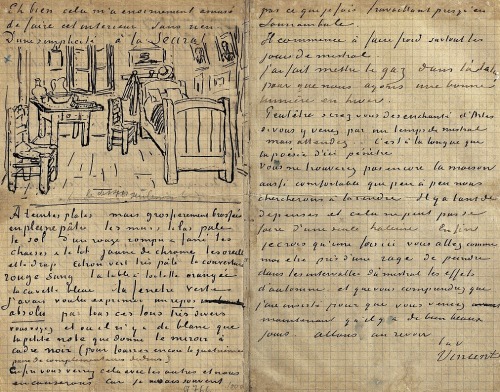 Eh bien cela m'a enormement amusé
de faire cet interieur sans rien
D'une simplicité à la Seurat
A teintes plates mais grossierement brossées
en pleine pâte les murs lilas pale
le sol d'un rouge rompu & fané les
chaises & le lit jaune de chrome les oreillers
et le drap citron vert très pale la couverture
rouge sang la table à toilette orangée
la cuvette bleue la fenetre verte
J'avais voulu exprimer un repos
absolu par tous ces tons très divers
vous voyez et où il n'y a de blanc que
la petite note que donne le miroir à
cadre noir (pour fourrer encore la quatrieme
paire de complementaires dedans)
Enfin vous verrez cela avec les autres et nous
en causerons car je ne sais souvent
par ce que je fais travaillant presqu'en
somnambule
Il commence à faire froid surtout les
jours de mistral
J'ai fait mettre le gaz dans l'atelier
pour que nous ayons une bonne
lumiere en hiver.
Peutêtre serez vous desenchanté d'Arles
si vous y venez par un temps de mistral
mais attendez... C'est à la longue que
la poësie d'ici pénètre
vous ne trouverez pas encore la maison
aussi confortable que peu à peu nous
chercherons à la rendre Il y a tant de
depenses et cela ne peut pas se
faire d'une seule haleine Enfin
je crois qu'une fois ici vous allez comme
moi etre pris d'une rage de peindre
dans les intervalles du mistral les effets
d'automne et que vous comprendrez que
j'ai insisté pour que vous venez
maintenant qu'il y a de bien beaux
jours allons au revoir
t. à v.
Vincent